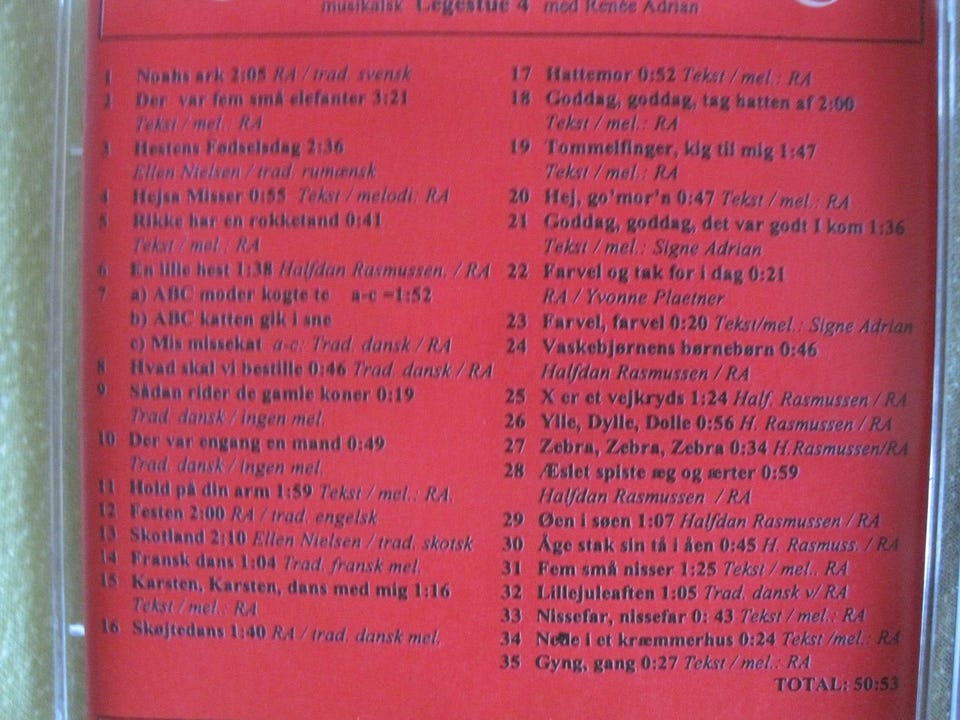 musikalsk Legestue 4 med Renée Adrian
1 Noahs ark 2:05 RA / trad. svensk
2 Der var fem små elefanter 3:21
Tekst / mel.: RA
3 Hestens Fødselsdag 2:36
Ellen Nielsen / trad. rumænsk
4 Hejsa Misser 0:55 Tekst / melodi: RA
5 Rikke har en rokketand 0:41
Tekst / mel.: RA
6 En lille hest 1:38 Halfdan Rasmussen. / RA
7 a) ABC moder kogte te a-c =1:52
b) ABC katten gik i sne
c) Mis missekat a-c: Trad. dansk / RA
8 Hvad skal vi bestille 0:46 Trad. dansk / RA
9 Sådan rider de gamle koner 0:19
Trad. dansk / ingen mel.
10 Der var engang en mand 0:49
Trad. dansk / ingen mel.
11 Hold på din arm 1:59 Tekst / mel.: RA.
12 Festen 2:00 RA / trad. engelsk
13 Skotland 2:10 Ellen Nielsen / trad. skotsk
14 Fransk dans 1:04 Trad. fransk mel.
15 Karsten, Karsten, dans med mig 1:16
Tekst / mel.: RA
16 Skøjtedans 1:40 RA / trad. dansk mel.
17 Hattemor 0:52 Tekst / mel.: RA
18 Goddag, goddag, tag hatten af 2:00
Tekst / mel.: RA
19 Tommelfinger, kig til mig 1:47
Tekst / mel.: RA
20 Hej, go'mor'n 0:47 Tekst / mel.: RA
21 Goddag, goddag, det var godt I kom 1:36
Tekst / mel.: Signe Adrian
22 Farvel og tak for i dag 0:21
RA / Yvonne Plaetner
23 Farvel, farvel 0:20 Tekst/mel.: Signe Adrian
24 Vaskebjørnens børnebørn 0:46
Halfdan Rasmussen / RA
25 X er et vejkryds 1:24 Half. Rasmussen / RA
26 Ylle, Dylle, Dolle 0:56 H. Rasmussen / RA
27 Zebra, Zebra, Zebra 0:34 H.Rasmussen/RA
28 Æslet spiste æg og ærter 0:59
Halfdan Rasmussen / RA
29 Øen i søen 1:07 Halfdan Rasmussen / RA
30 Åge stak sin tå i åen 0:45 H. Rasmuss. / RA
31 Fem små nisser 1:25 Tekst / mel.. RA
32 Lillejuleaften 1:05 Trad. dansk v/ RA
33 Nissefar, nissefar 0: 43 Tekst / mel.: RA
34 i et kræmmerhus 0:24 Tekst /mel.: RA
35 Gyng, gang 0:27 Tekst / mel.: RA
TOTAL: 50:53